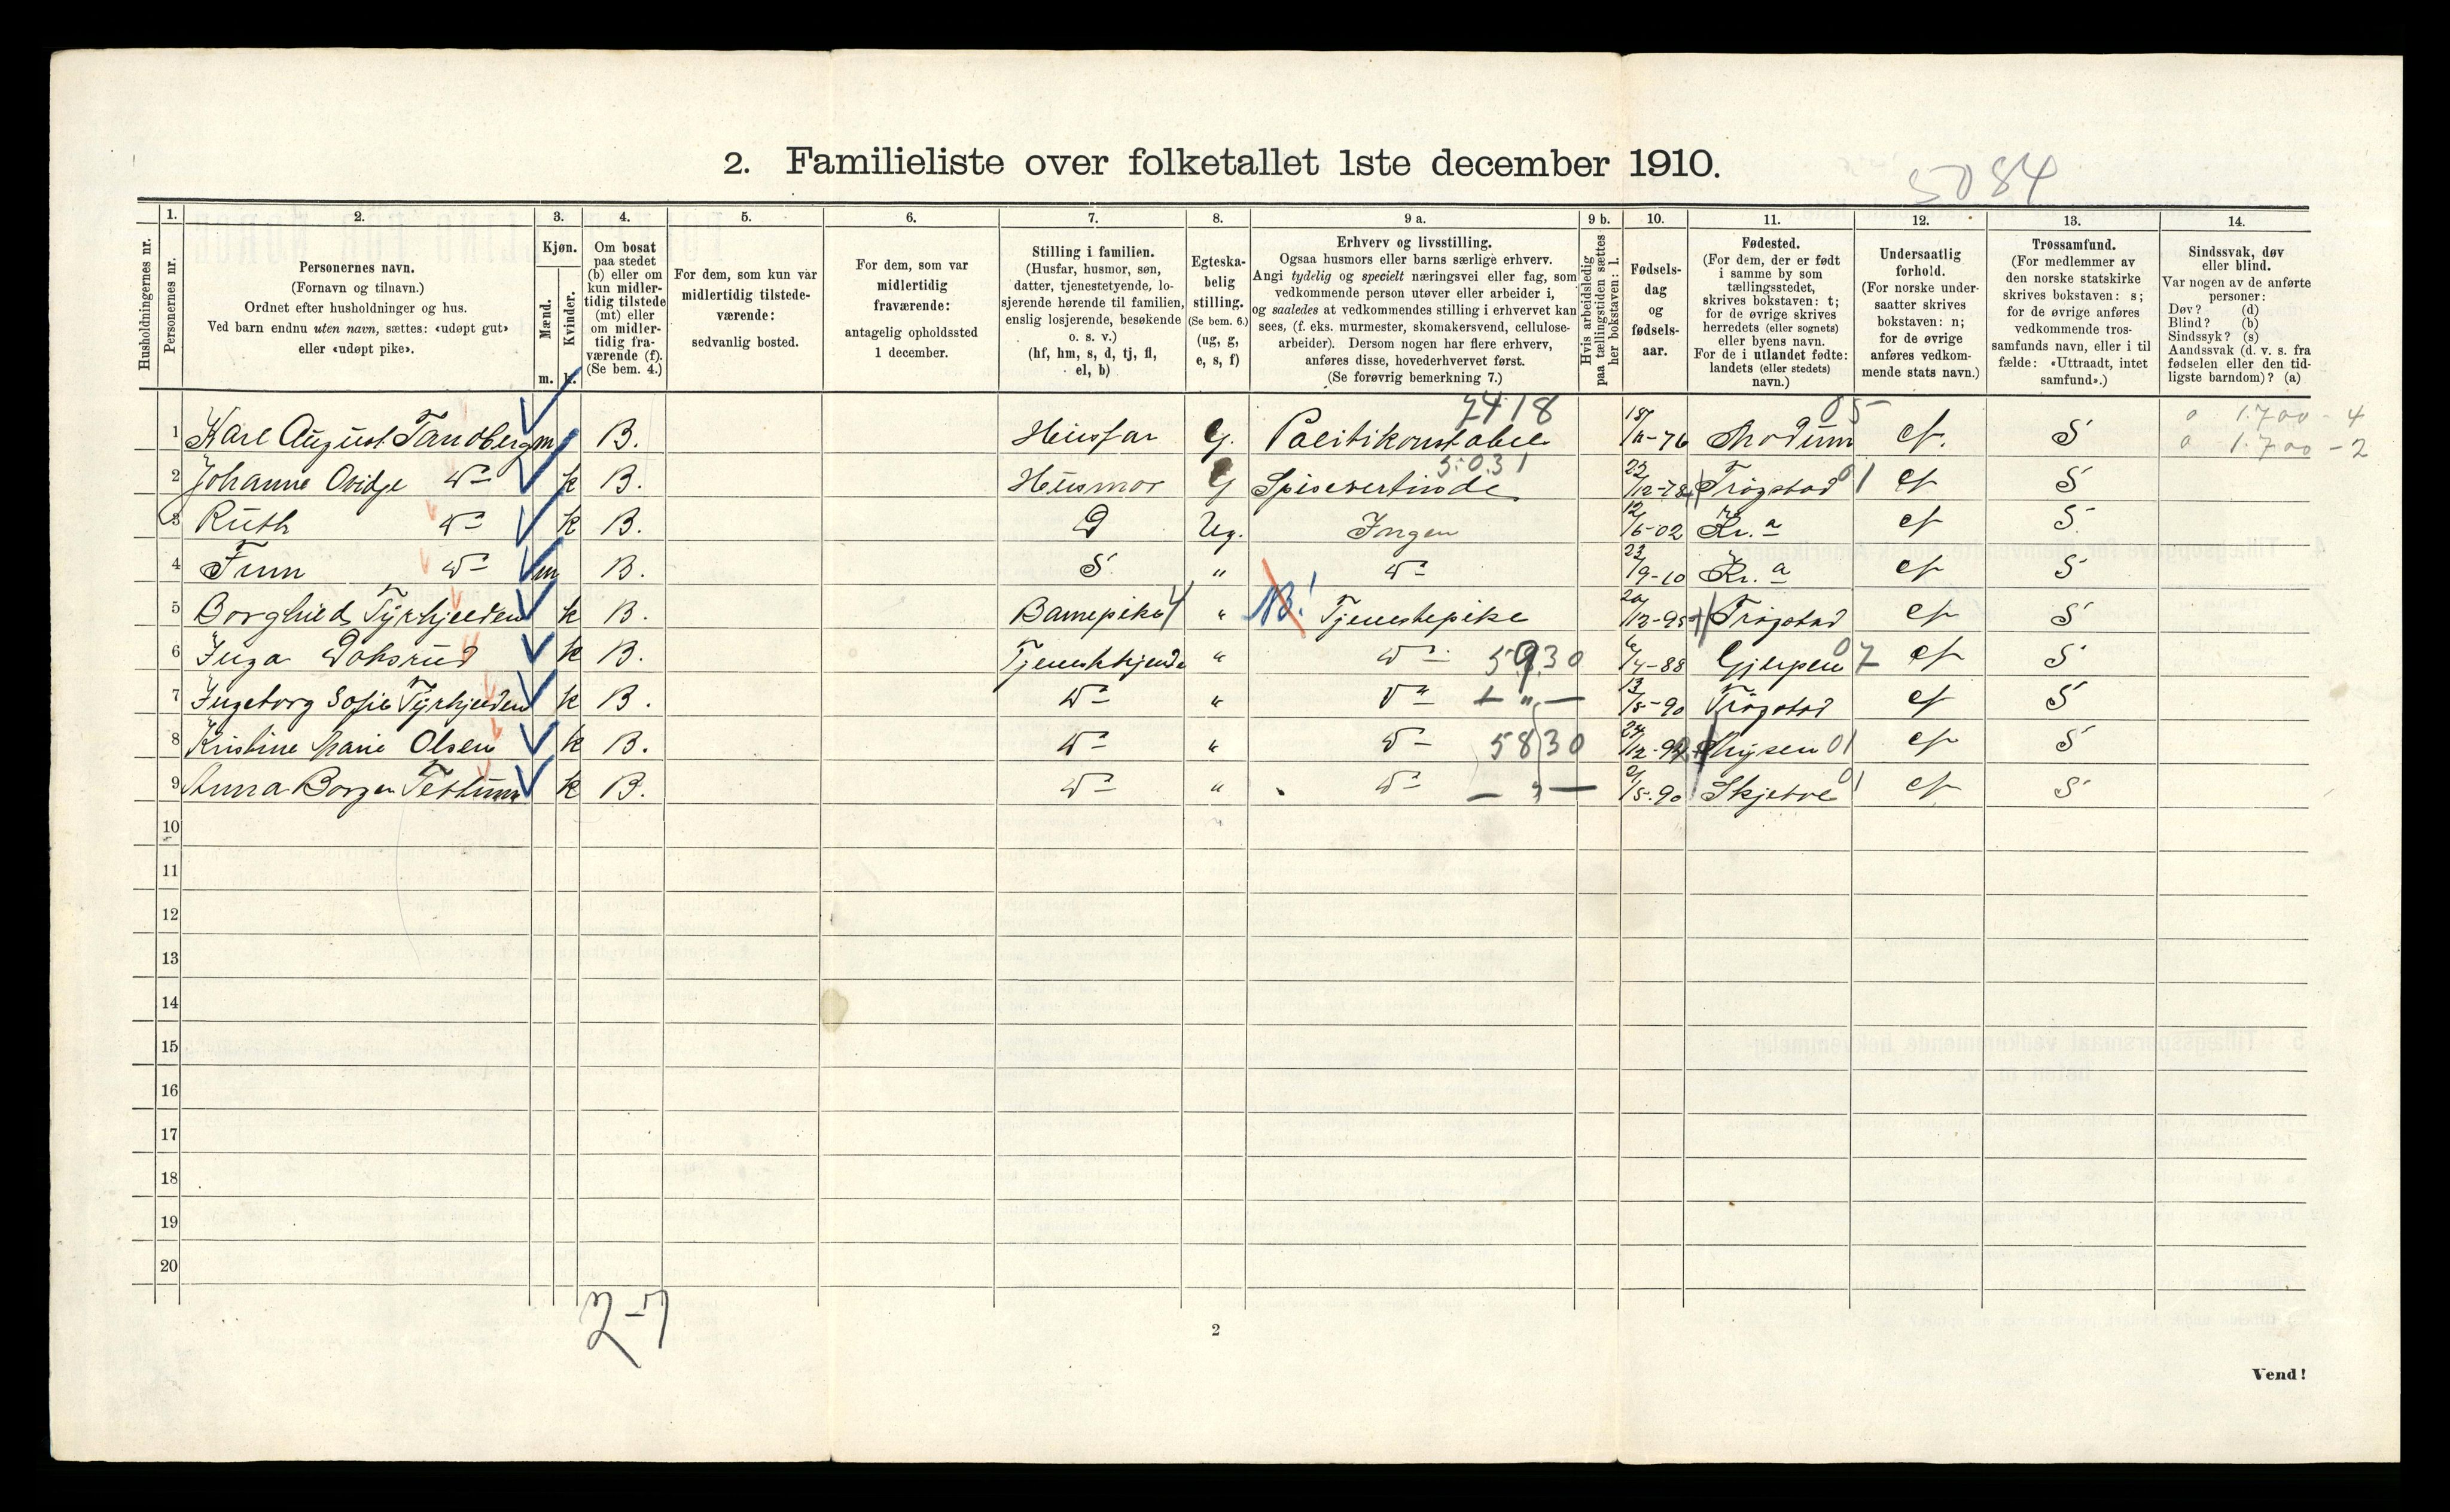 2. Familieliste over folketallet 1ste december 1910.
5084
Husholdningernes nr.
1. Personernes nr.
2. Personernes navn. (Fornavn og tilnavn.) Ordnet efter husholdninger og hus. Ved barn endnu uten navn, sættes: «udøpt gut» eller «udøpt pike».
3. Kjøn. Mænd. m. Kvinder. k.
4. Om bosat paa stedet (b) eller om kun midlertidig tilstede (mt) eller om midlertidig fraværende (f). (Se bem. 4.)
5. For dem, som kun var midlertidig tilstedeværende: sedvanlig bosted.
6. For dem, som var midlertidig fraværende: antagelig opholdssted 1 december.
7. Stilling i familien. (Husfar, husmor, søn, datter, tjenestetyende, losjerende hørende til familien, enslig losjerende, besøkende o. s. v.) (hf, hm, s, d, tj, fl, el, b)
8. Egteskabelig stilling. (Se bem. 6.) (ug, g, e, s, f)
9 a. Erhverv og livsstilling. Ogsaa husmors eller barns særlige erhverv. Angi tydelig og specielt næringsvei eller fag, som vedkommende person utøver eller arbeider i, og saaledes at vedkommendes stilling i erhvervet kan sees, (f. eks. murmester, skomakersvend, cellulosearbeider). Dersom nogen har flere erhverv, anføres disse, hovederhvervet først. (Se forøvrig bemerkning 7.)
9 b. Hvis arbeidsledig paa tællingstiden sættes her bokstaven: l.
10. Fødselsdag og fødselsaar.
11. Fødested. (For dem, der er født i samme by som tællingsstedet, skrives bokstaven: t; for de øvrige skrives herredets (eller sognets) eller byens navn. For de i utlandet fødte: landets (eller stedets) navn.)
12. Undersaatlig forhold. (For norske undersaatter skrives bokstaven: n; for de øvrige anføres vedkommende stats navn.)
13. Trossamfund. (For medlemmer av den norske statskirke skrives bokstaven: s; for de øvrige anføres vedkommende trossamfunds navn, eller i tilfælde: «Uttraadt, intet samfund».)
14. Sindssvak, døv eller blind. Var nogen av de anførte personer: Døv? (d) Blind? (b) Sindssyk? (s) Aandssvak (d. v. s. fra fødselen eller den tidligste barndom)? (a)
1 Karl August Tandberg m B. Husfar G. Politikonstabel 2418 Modum 05 n. S 1.700 - 4
1.700 - 2
2 Johanne Ovidje Do k B. Husmor G Spisevertinde 5031 22/12-78 Trøgstad 01 n S
3 Ruth Do k B. D Ug. Ingen 12/6-02 Kr.a n S
4 Finn Do m B. S " Do 23/9-10 Kr.a n S
5 Borghild Tyrhjelden k B. Barnepike " NB! Tjenestepike 20/12-95 Trøgstad n S
6 Inga Dahsrud k B. " Do 5930 6/4-88 Gjerpen 07 n S
7 Ingeborg Sofie Tyrhjelden k B. Do " Do - " - 13/5-90 Trøgstad n S
8 Kristine Marie Olsen k B. Do " Do 5830 Mysen 01 n S
9 Anna Borgen k B. Do " Do - " - 2/5-90 Skjetve 01 n S
10
11
12
13
14
15
16
17
18
19
20
2
Vend!